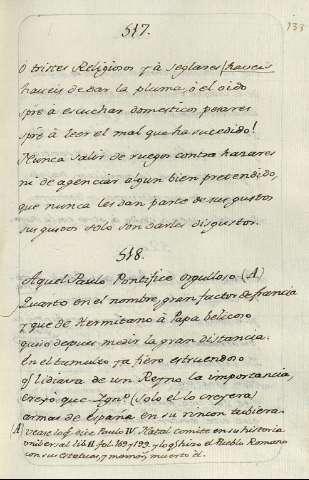 517.
133
O tristes Religiosos q̃ à seglares haveis
haveis de dar la pluma, ò el oido
sprẽ a escuchar domesticos pesares
sprẽ à leer el mal que ha sucedido!
Nunca salir de ruegos contra hazares
ni de agenciar algun bien pretendido,
que nunca les dan parte de sus gustos
sus gustos solo son darles disgustos.
518.
Aquel Paulo Pontifice orgulloso (A)
Quarto en el nombre, gran factor de francia
y que de Hermitano à Papa belicoso
quiso depues medir la gran distancia.
En el tumulto ya fiero estruendoso
q̃ lidiava de un Reyno la importancia,
creyò que Ign.º (solo el lo creyera)
armas de España en su rincon tubiera.
(A) vease lo q̃ dice Paulo IV. Natal comite en su historia
universal lib. II. fol. 169 y 199. y lo q̃ hizo el Pueblo Romano
con sus estatuas, y memori.ˢ muerto el.